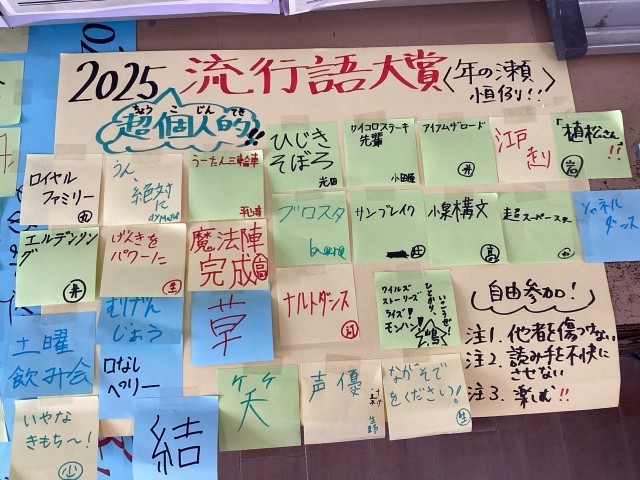 2025 流行語大賞
〈年の瀬
恒例!!〉
ちょう こ じん てき
超個人的!!
ひじき
そぼろ
光田
サイコロステーキ
先輩
小田原
アイアムザロード
井
江戸
走り
「植松さん」
!!
岩
ロイヤル
ファミリー
カ
うん、
絶対に
うーたん三輪車
ブロスタ
サンブレイク
辻
小泉構文
高
超スーパースター
シャネル
ダンス
エルデンリン
グ
井
げんきを
パワーに
生
魔法陣
完成
高
むりげん
じょう
草
ナルトダンス
河
ワイルズ
ストーリーズ
ライズ!
モンハン!
ひとかり
いこうぜ
自由参加!
注1. 他者を傷つけない
注2. 読み手を不快に
させない
注3. 楽しむ!!
土曜
飲み会
口なし
ペリー
竹笑
声優
ながそで
をください!
生
いやな
きもち〜!
小
結